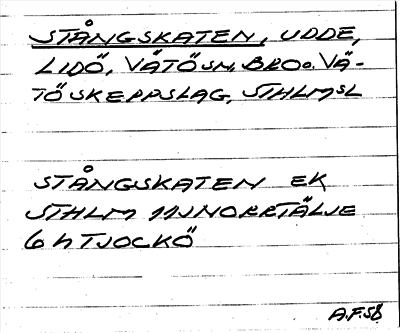 STÅNGSKATEN, UDDE,
LIDÖ, VÄTÖ SN, BRO o. VÄ-
TÖ SKEPPSLAG, STHLMSL
STÅNGSKATEN EK
STHLM 11J NORRTÄLJE
6 h TJOCKÖ
A.F. 58